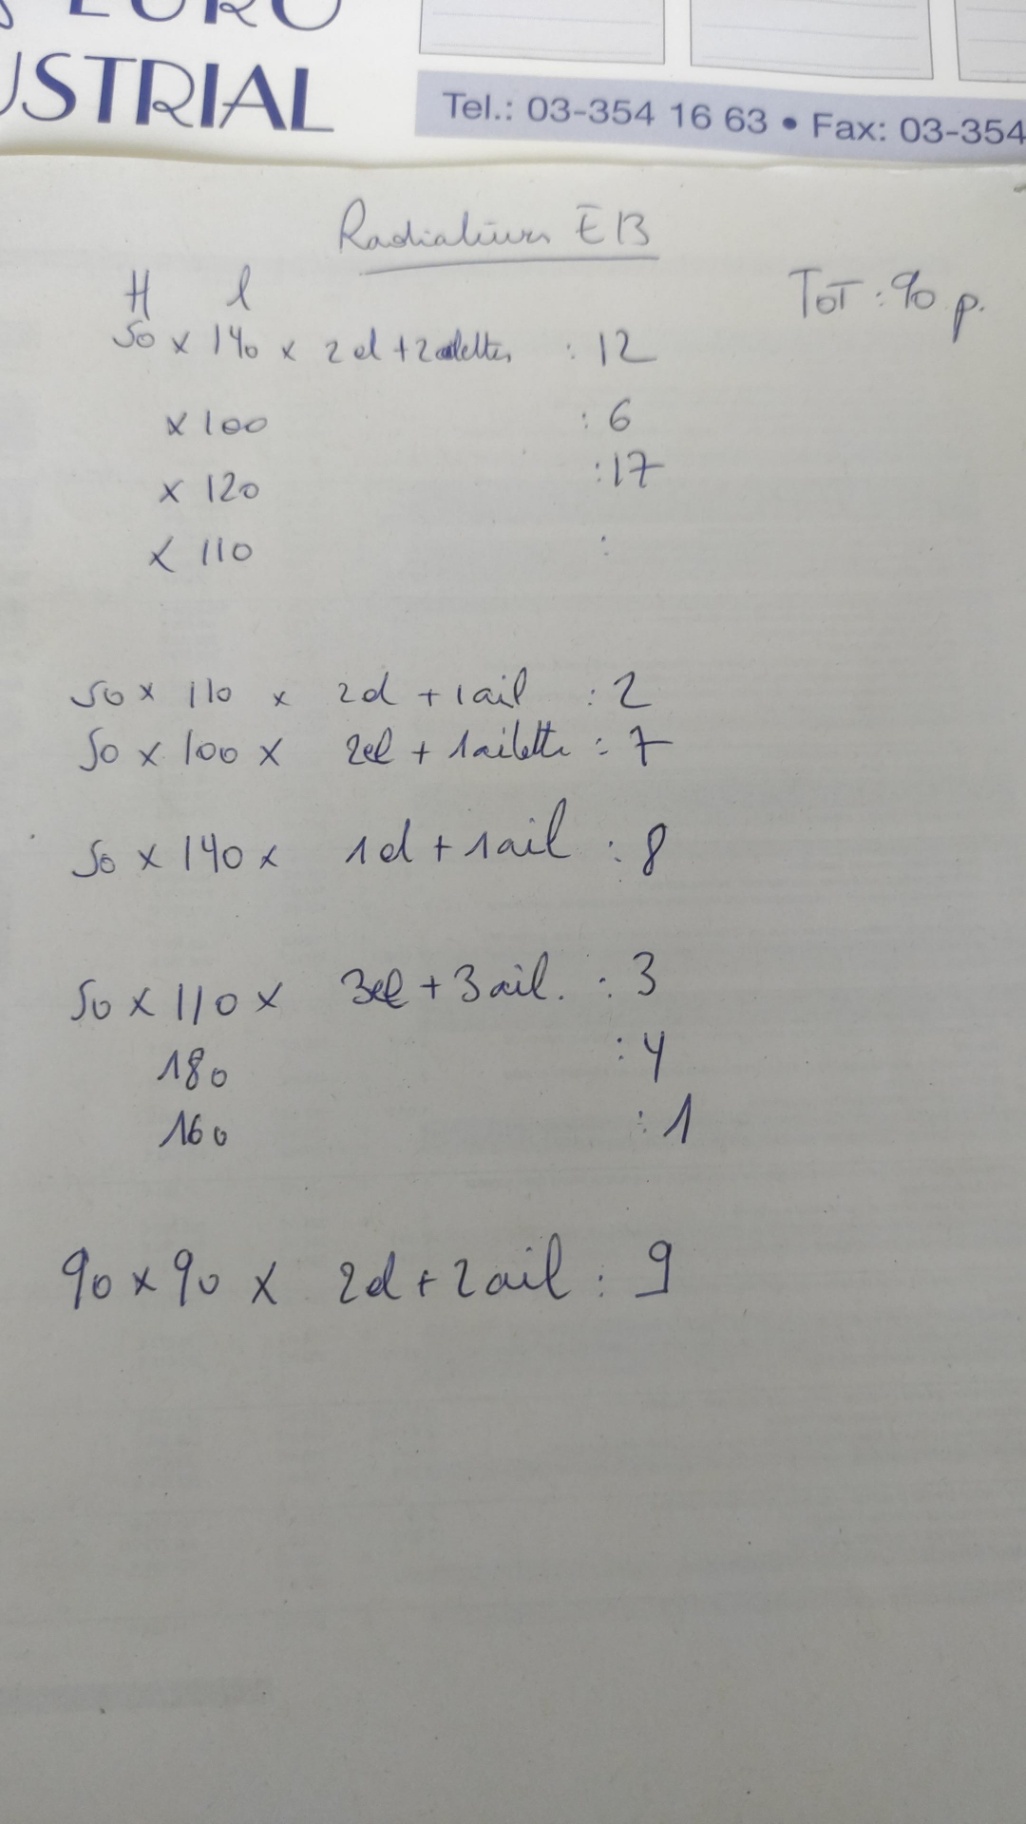 EURO
USTRIAL
Tel.: 03-354 16 63 • Fax: 03-354
Radiateurs EB
H l
TOT : 90 p.
50 x 140 x 2el + 2ailettes : 12
x 100 : 6
x 120 : 17
x 110 :
50 x 110 x 2el + 1ail : 2
50 x 100 x 2el + 1ailette : 7
50 x 140 x 1el + 1ail : 8
50 x 110 x 3el + 3ail. : 3
180 : 4
160 : 1
90 x 90 x 2el + 2ail : 9